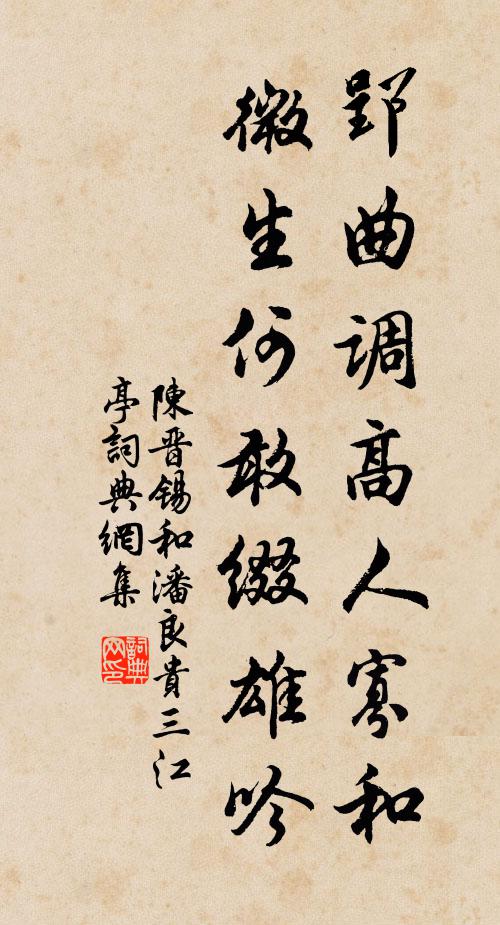 郢曲调高人寡和
微生何敢缀雄吟
陳晋锡和潘良貴三江
亭詞典網集
詞典
网印